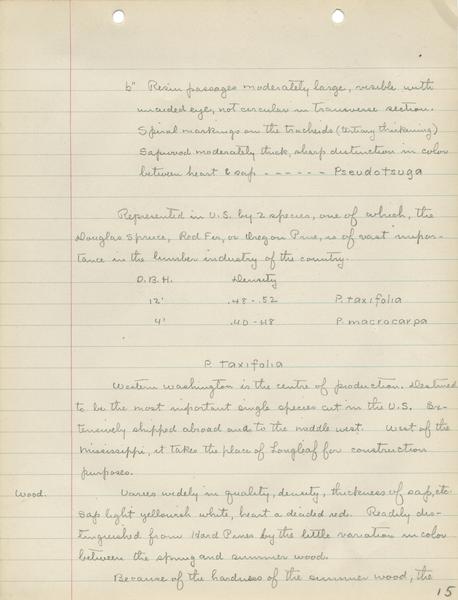 b" Resin passages moderately large, visible with
unaided eye, not circular in transverse section.
Spiral markings on the tracheids (tertiary thickening)
Sapwood moderately thick, sharp distinction in color
between heart & sap - - - - - - Pseudotsuga
Represented in U.S. by 2 species, one of which, the
Douglas Spruce, Red Fir, or Oregon Pine, is of vast impor-
tance in the lumber industry of the country.
D.B.H. Density
12' .48-.52 P. taxifolia
4' .40-.48 P. macrocarpa
P. taxifolia
Western Washington is the centre of production. Destined
to be the most important single species cut in the U.S. Ex-
tensively shipped abroad and to the middle west. West of the
Mississippi, it takes the place of Longleaf for construction
purposes.
Wood. Varies widely in quality, density, thickness of sap, etc.
Sap light yellowish white, heart a decided red. Readily dis-
tinguished from Hard Pines by the little variation in color
between the spring and summer wood.
Because of the hardness of the summer wood, the
15